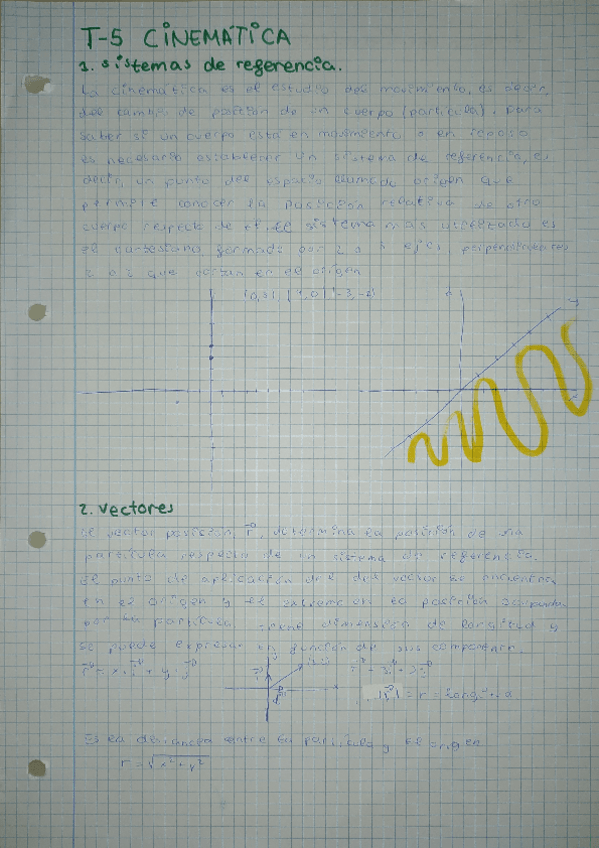 T-5 CINEMÁTICA
1. sistemas de referencia.
La cinematica es el estudio del movimiento, es decir,
del cambio de posicion de un cuerpo (particula). Para
saber si un cuerpo está en movimiento o en reposo
es necesario establecer un sistema de referencia, es
decir, un punto del espacio llamado origen que
permite conocer la posicion relativa de otro
cuerpo respecto de él. El sistema más utilizado es
el cartesiano formado por 2 o 3 ejes, perpendiculares
2 a 2 que cortan en el origen
2. vectores
El vector posición, r, determina la posición de una
partícula respecto de un sistema de referencia.
El punto de aplicación del vector se encuentra
en el origen y el extremo en la posición ocupada
por la partícula. Tiene dimensión de longitud y
se puede expresar en función de sus componentes.
r = x·i + y·j
|r| = r = longitud
Es la distancia entre la partícula y el origen
r = √x² + y²